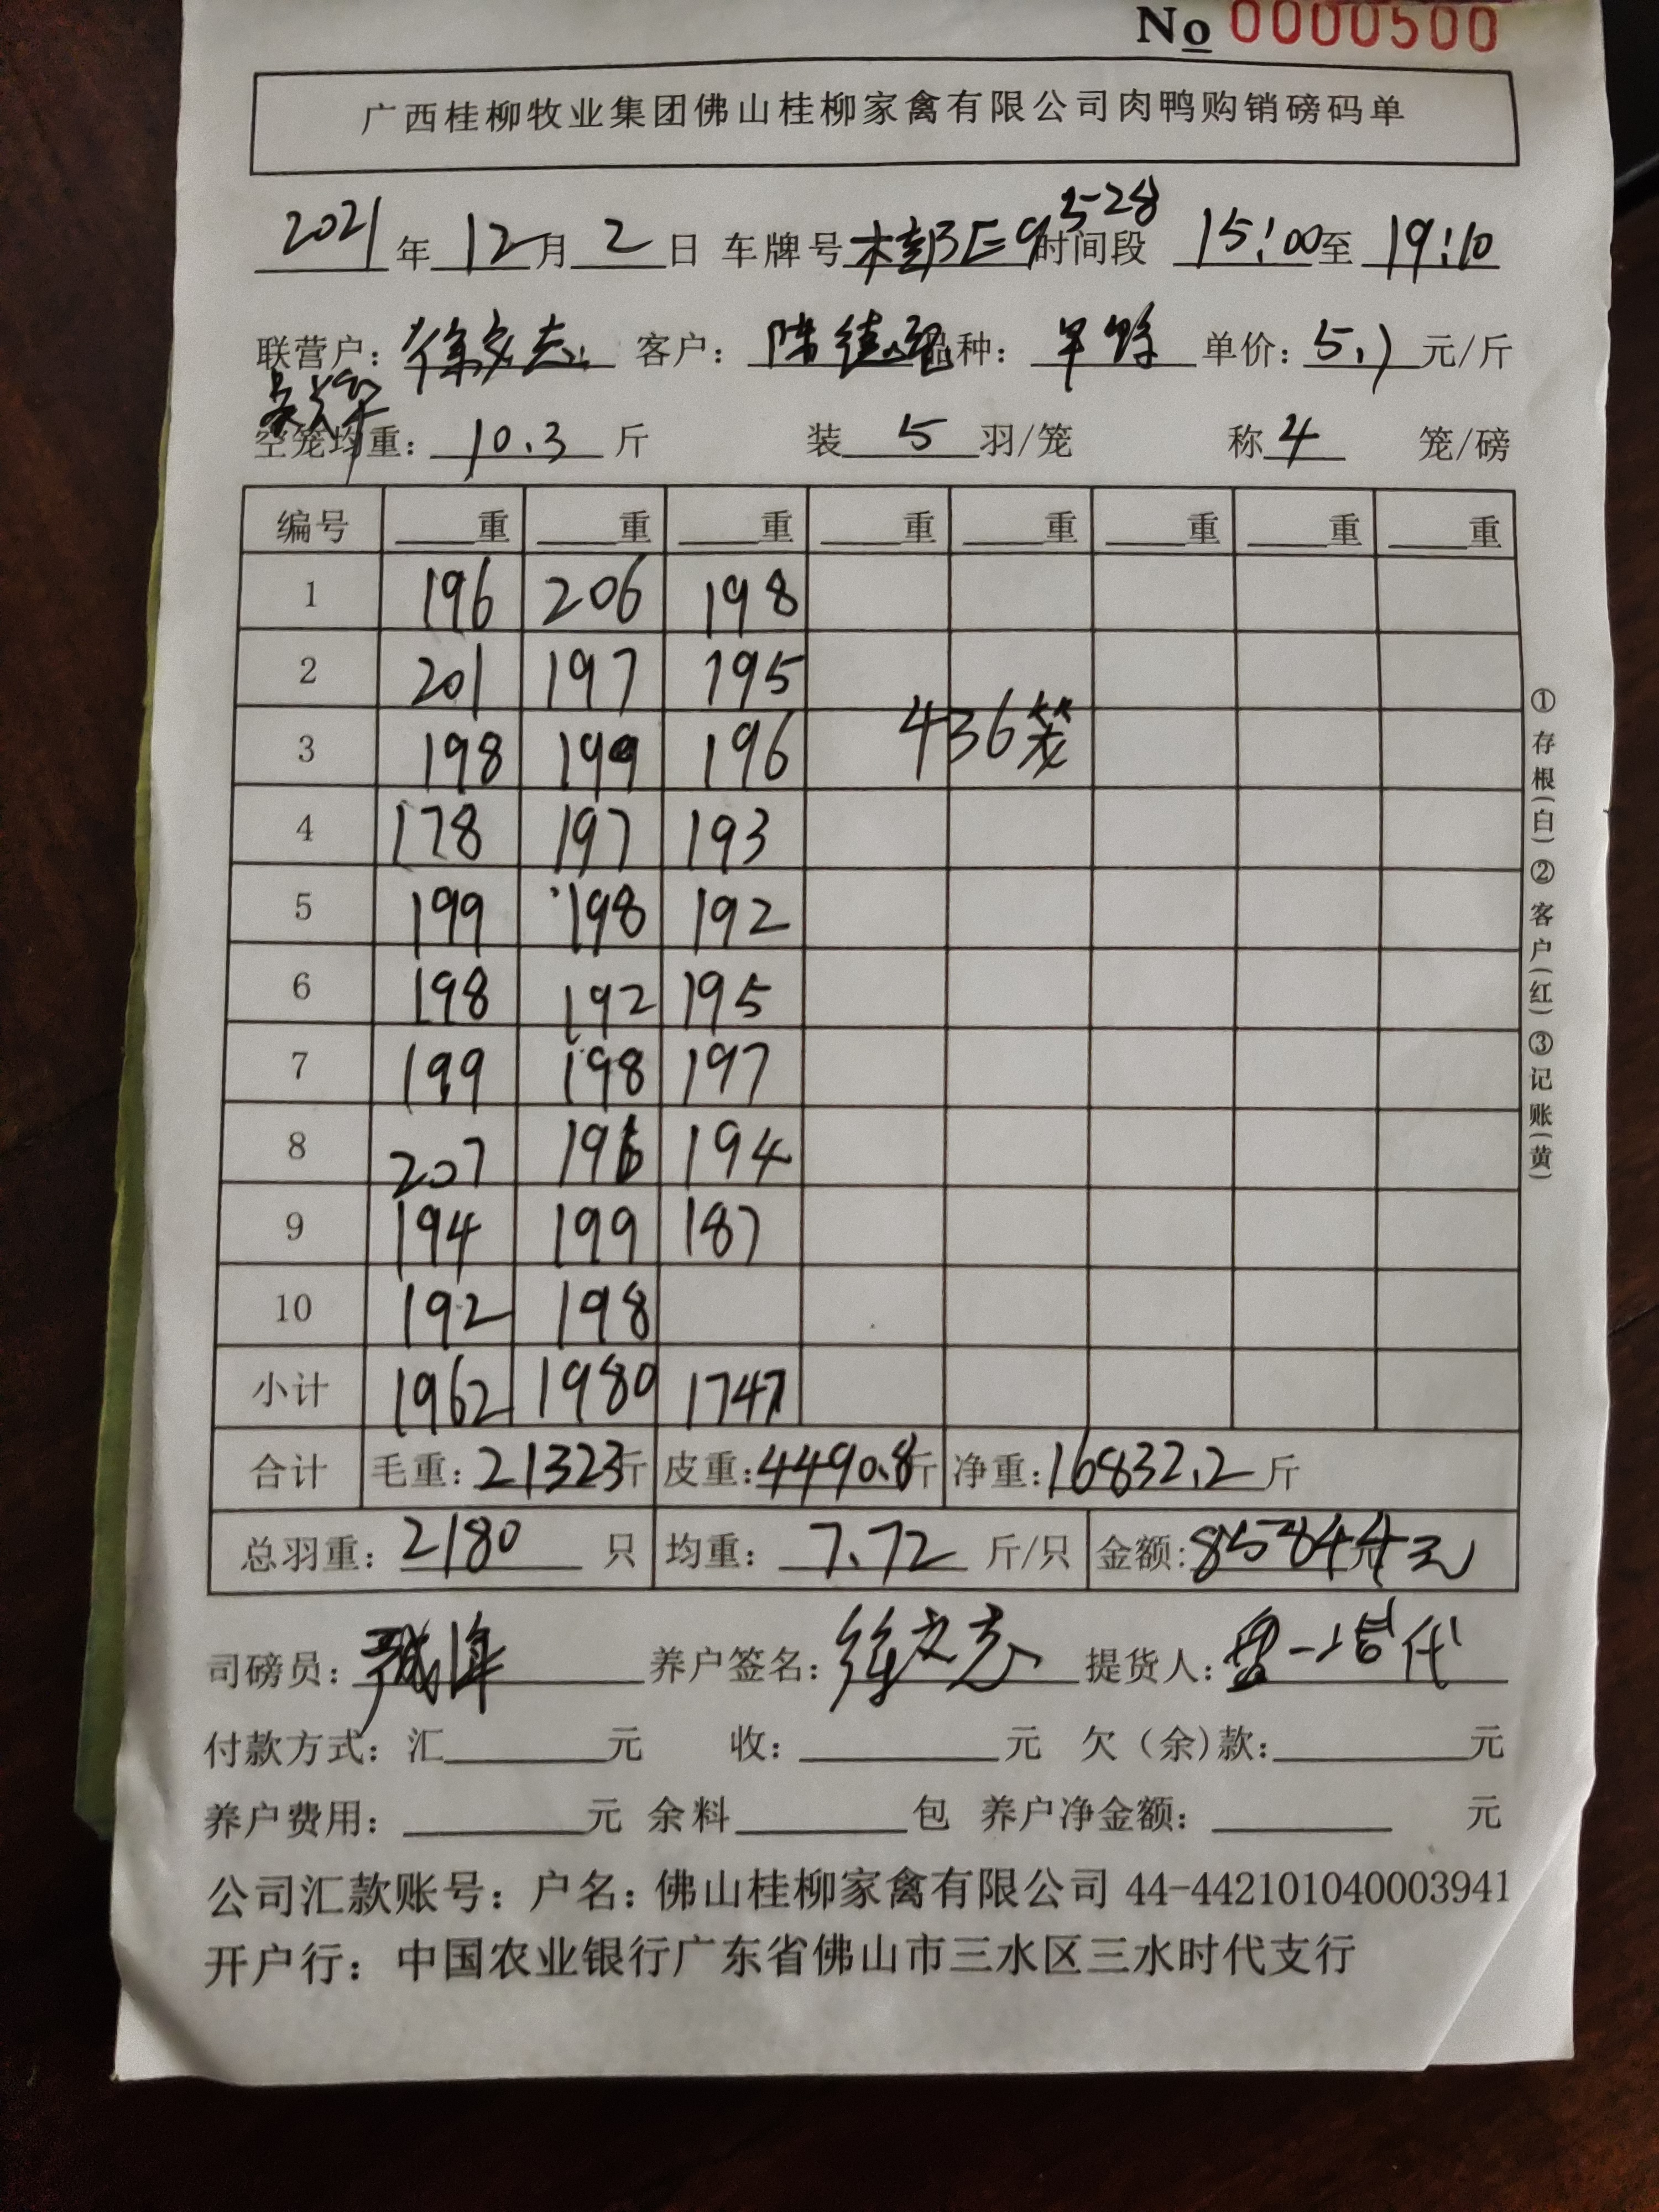 No 0000500
广西桂柳牧业集团佛山桂柳家禽有限公司肉鸭购销磅码单
2021年12月2日 车牌号 时间段 15:00至19:10
联营户:徐文志 客户: 品种: 单价:5.1元/斤
空笼均重:10.3斤 装5羽/笼 称4笼/磅
编号 重 重 重 重 重 重 重 重
1 196 206 198
2 201 197 195
3 198 199 196 436笼
4 178 197 193
5 199 198 192
6 198 192 195
7 199 198 197
8 207 196 194
9 194 199 187
10 192 198
小计 1962 1980 1747
合计 毛重:21323斤 皮重:4490.8斤 净重:16832.2斤
总羽重:2180只 均重:7.72斤/只 金额:85844元
司磅员: 养户签名:徐文志 提货人: 代
付款方式:汇 元 收: 元 欠(余)款: 元
养户费用: 元 余料 包 养户净金额: 元
公司汇款账号:户名:佛山桂柳家禽有限公司 44-442101040003941
开户行:中国农业银行广东省佛山市三水区三水时代支行
①存根(白)②客户(红)③记账(黄)